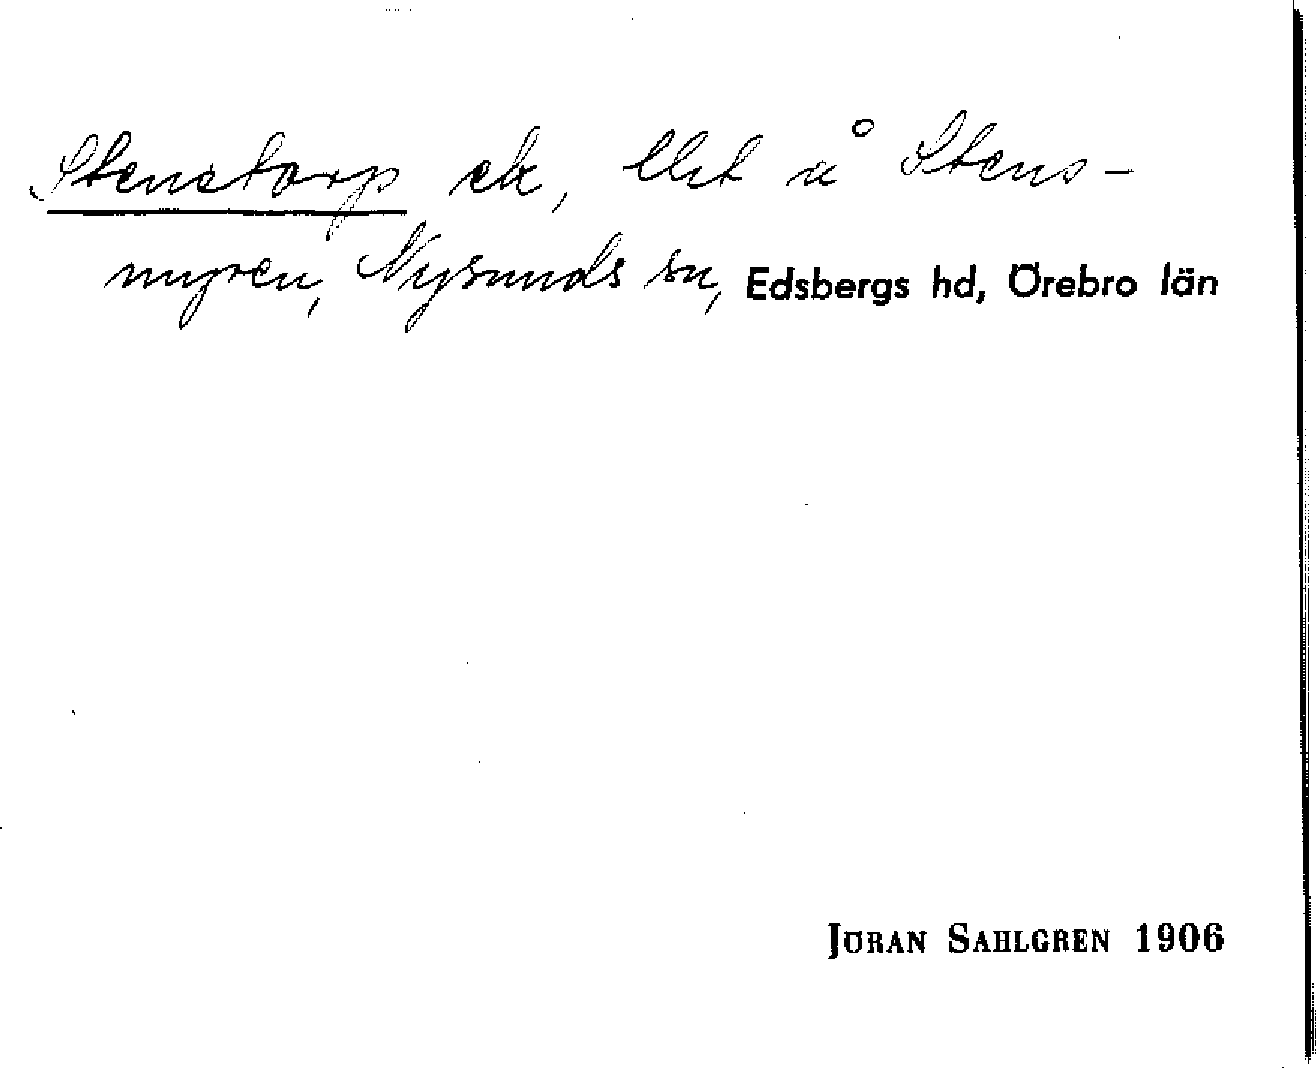 Stenstorp ek, å Stens-
myren, Nysunds sn, Edsbergs hd, Örebro län
JÖRAN SAHLGREN 1906